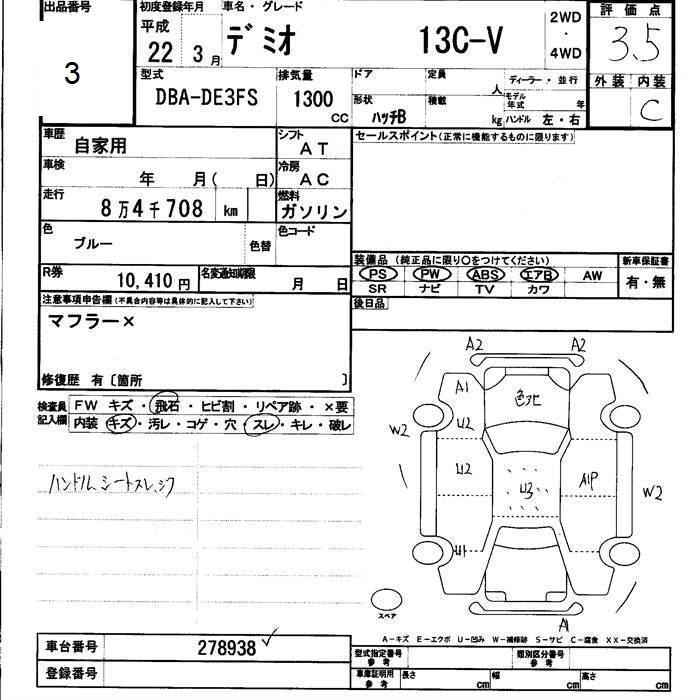 出品番号 初度登録年月 車名・グレード 評価点
平成 2WD
22 3月 デミオ 13C-V ・ 3.5
4WD
3 型式 排気量 ドア 定員 ディーラー・並行 外装 内装
人 モデル年式 年
DBA-DE3FS 1300 CC 形状 積載 C
ハッチB kg ハンドル 左・右
車歴 自家用 シフト AT セールスポイント(正常に機能するものに限ります)
車検 年 月( 日) 冷房 AC
走行 8万4千708 km 燃料 ガソリン
色 ブルー 色替 色コード
装備品(純正品に限り○をつけてください) 新車保証書
R券 10,410円 名変通知期限 月 日 PS PW ABS エアB AW 有・無
SR ナビ TV カワ
注意事項申告欄(不具合内容等は具体的に記入して下さい) 後日品
マフラー×
修復歴 有〔箇所 〕
検査員記入欄 FW キズ・飛石・ヒビ割・リペア跡・×要
内装 キズ・汚レ・コゲ・穴・スレ・キレ・破レ
ハンドル、シートスレ、シワ
A2 A2
A1 色アセ
W2 U2
U2 U3 A1P W2
U1
スペア A1
A-キズ E-エクボ U-凹み W-補修跡 S-サビ C-腐食 XX-交換済
車台番号 278938 型式指定番号 参考 類別区分番号 参考
登録番号 車庫証明用 参考 長さ cm 幅 cm 高さ cm